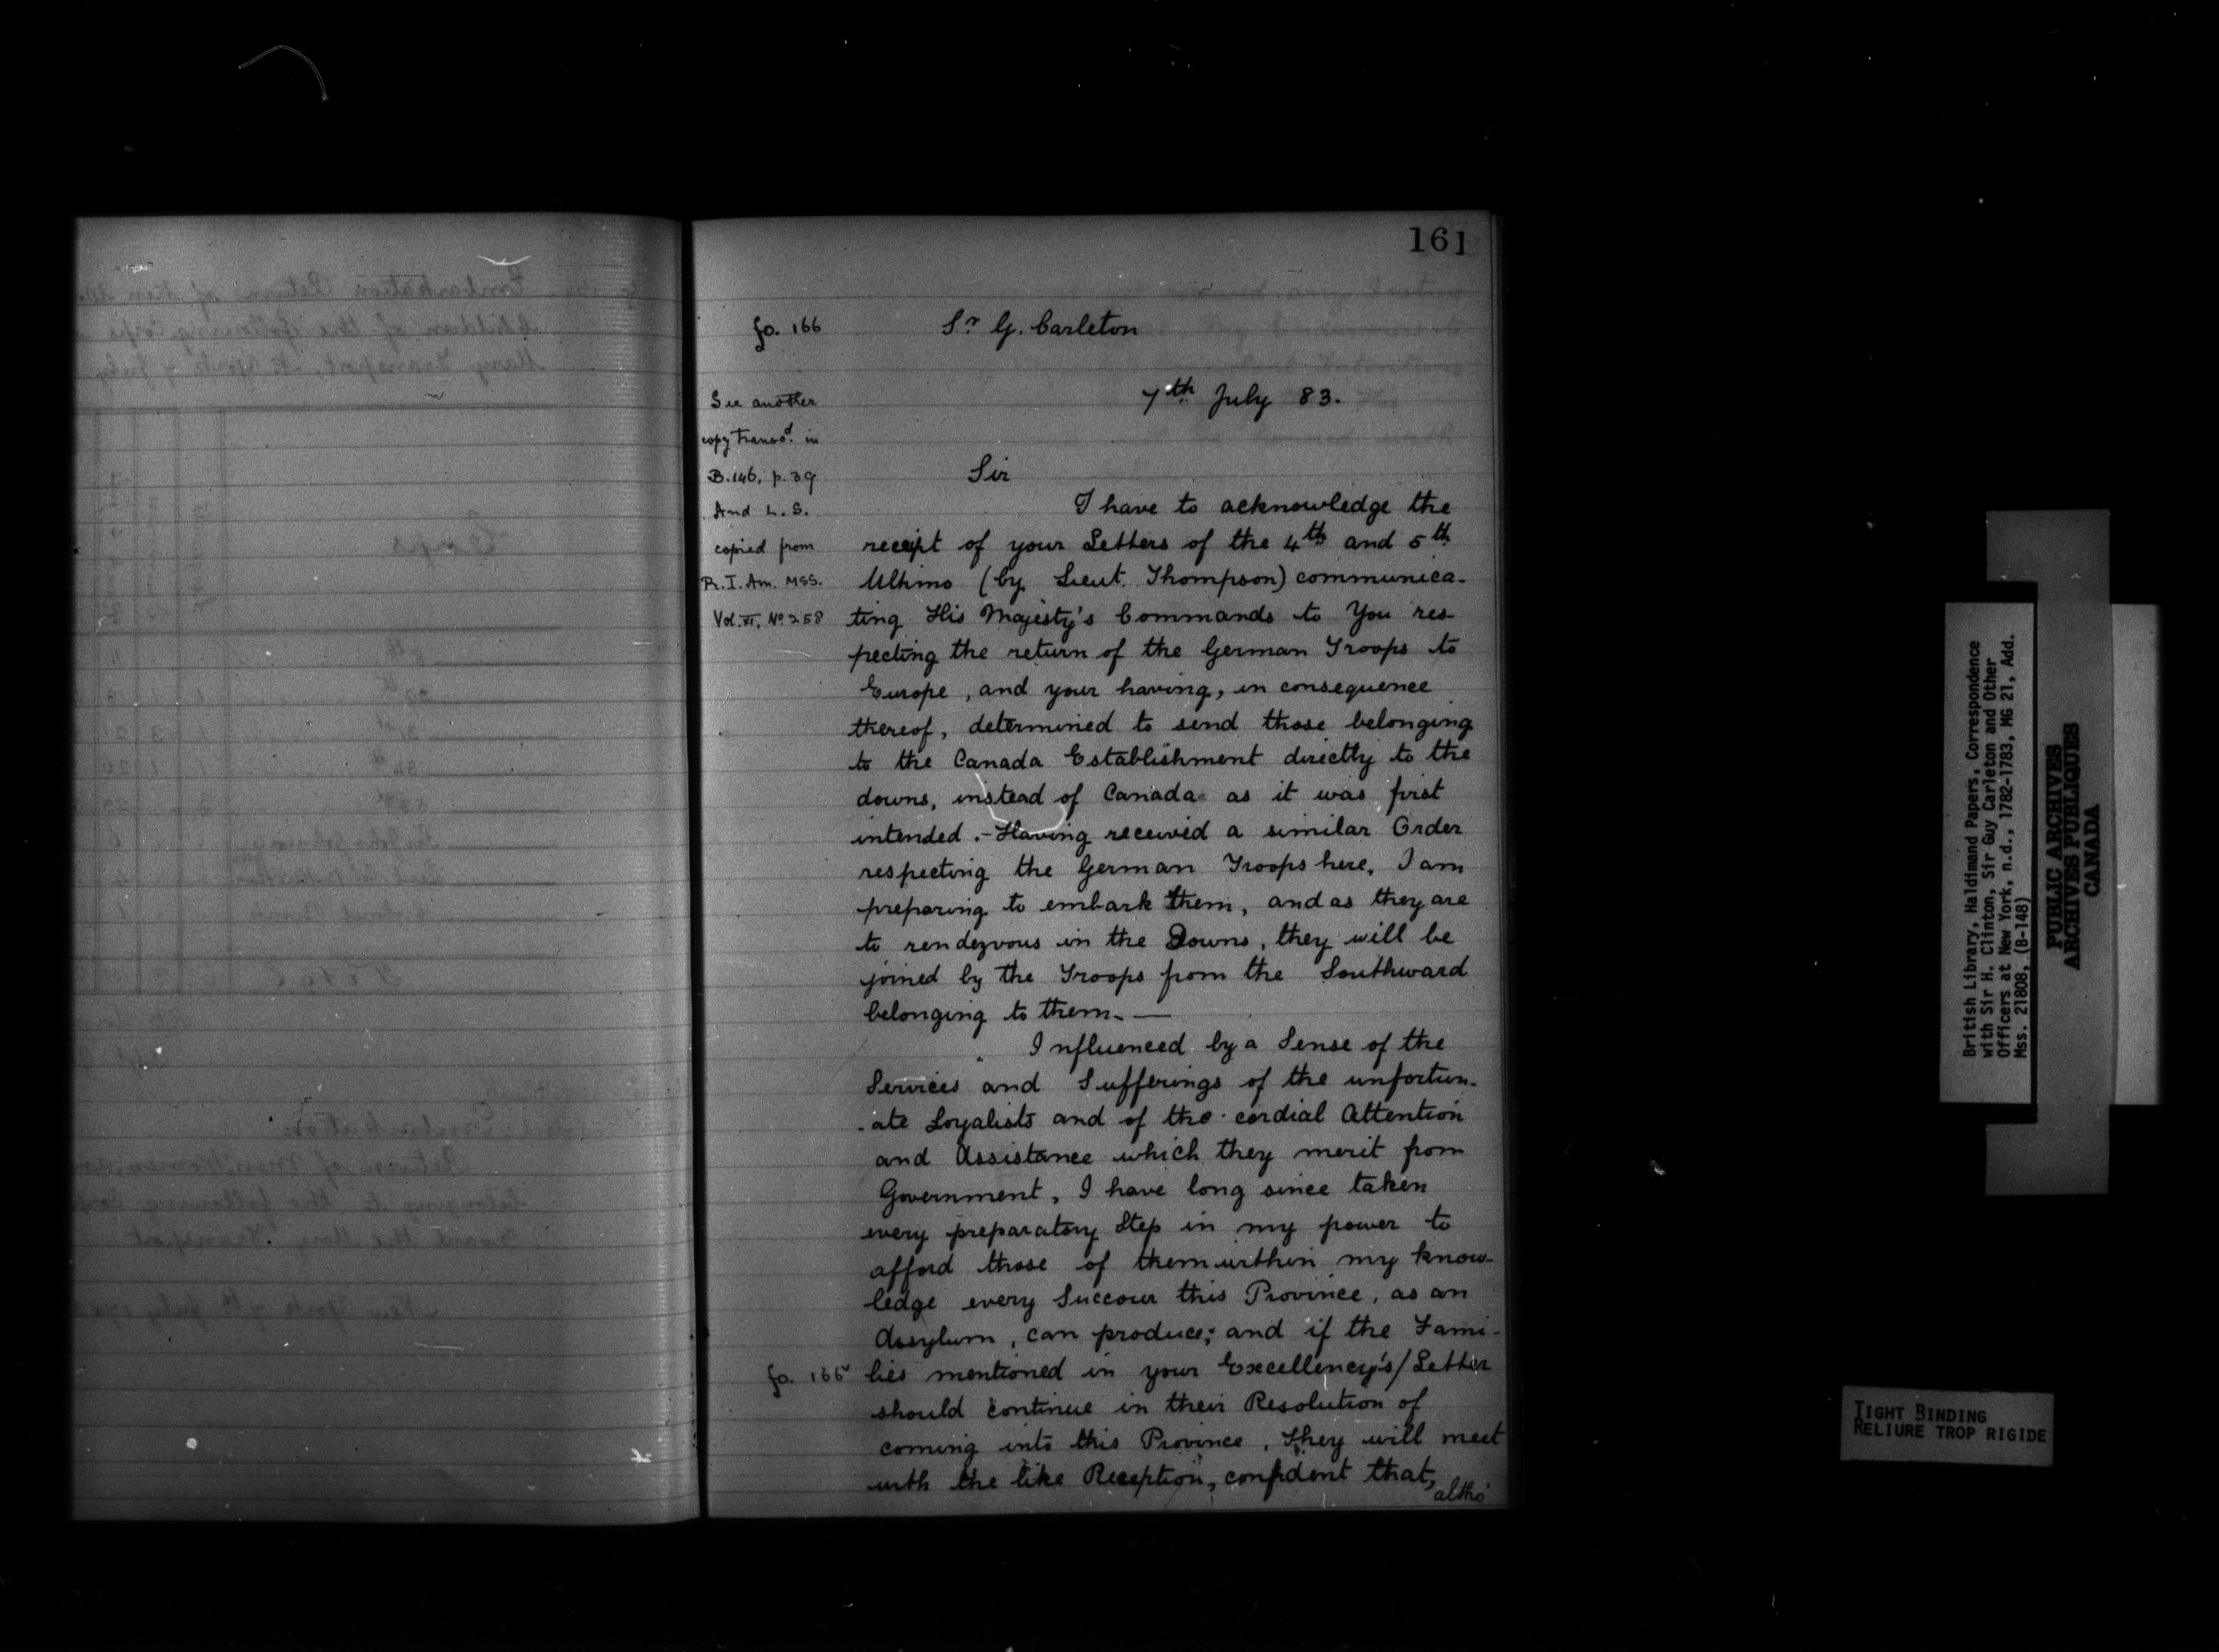 161
fo. 166
Sr. G. Carleton
7th July 83.
See another
copy transd. in
B.146, p.39
And L. S.
copied from
R. I. Am. MSS.
Vol. XI, No. 258
Sir
I have to acknowledge the
receipt of your Letters of the 4th and 5th
Ultimo (by Lieut. Thompson) communica-
ting His Majesty's Commands to You res-
pecting the return of the German Troops to
Europe, and your having, in consequence
thereof, determined to send those belonging
to the Canada Establishment directly to the
downs, instead of Canada as it was first
intended.- Having received a similar Order
respecting the German Troops here, I am
preparing to embark them, and as they are
to rendezvous in the Downs, they will be
joined by the Troops from the Southward
belonging to them. —
Influenced by a Sense of the
Services and Sufferings of the unfortun-
-ate Loyalists and of the cordial Attention
and Assistance which they merit from
Government, I have long since taken
every preparatory Step in my power to
afford those of them within my know-
ledge every Succour this Province, as an
Assylum, can produce; and if the Fami-
fo. 166v
lies mentioned in your Excellency's/Letter
should continue in their Resolution of
coming into this Province, they will meet
with the like Reception, confident that,
altho'
British Library, Haldimand Papers, Correspondence
with Sir H. Clinton, Sir Guy Carleton and Other
Officers at New York, n.d., 1782-1783, MG 21, Add.
Mss. 21808, (B-148)
PUBLIC ARCHIVES
ARCHIVES PUBLIQUES
CANADA
TIGHT BINDING
RELIURE TROP RIGIDE